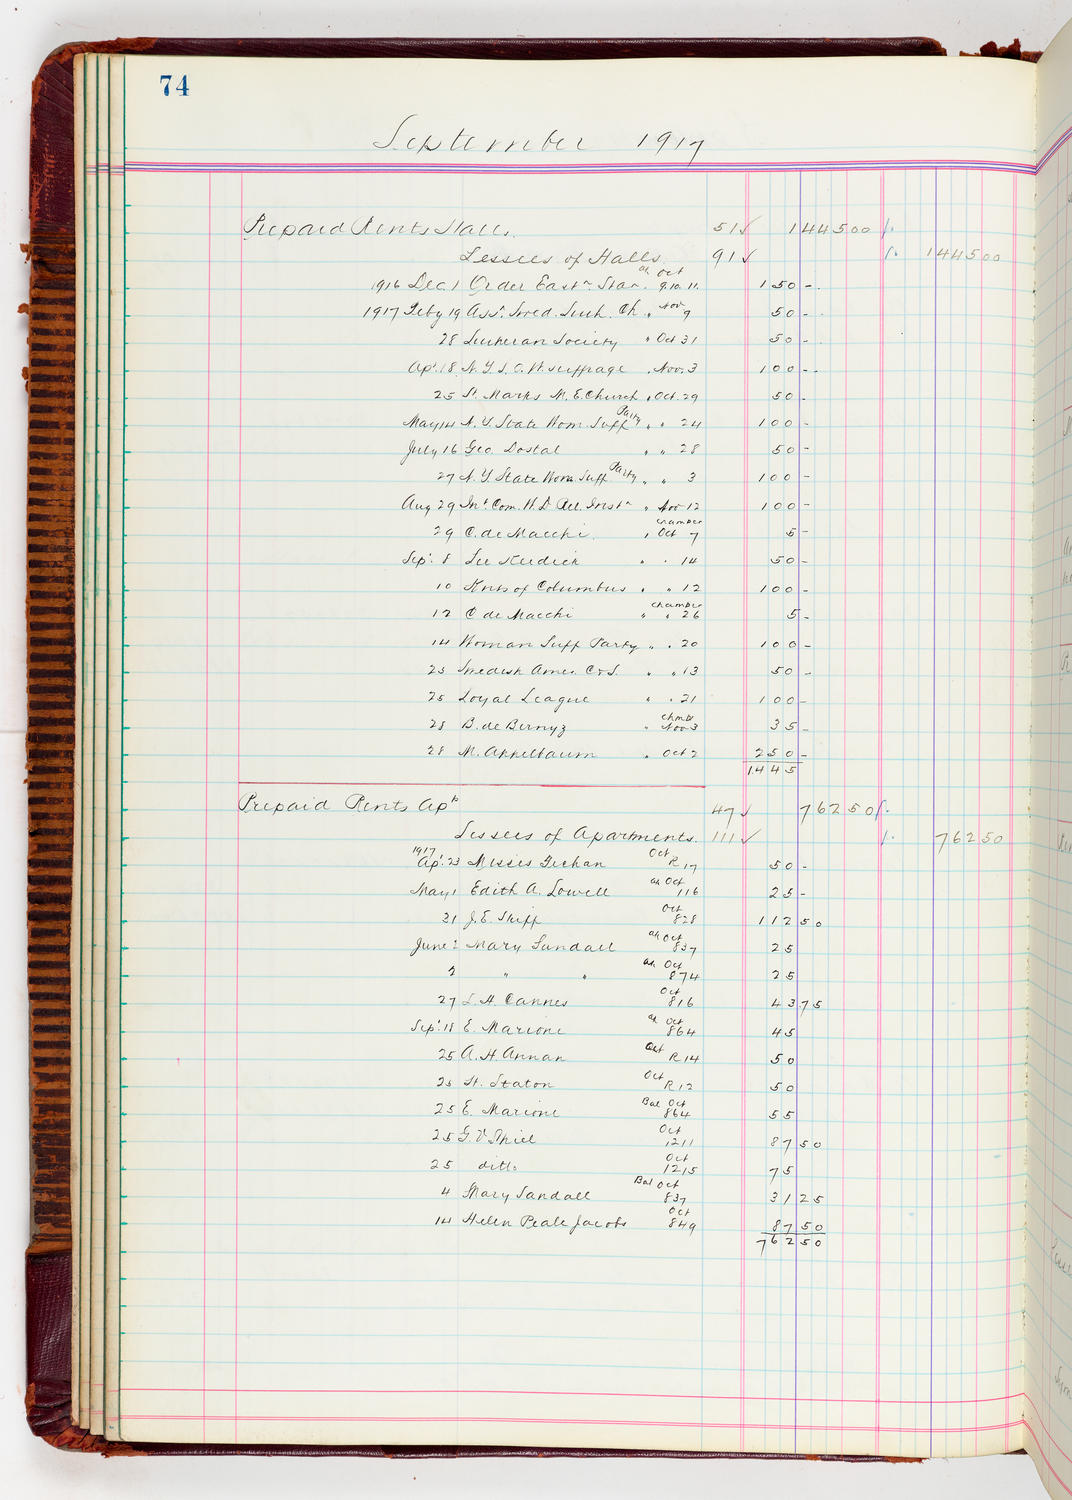 74
September 1917
Prepaid Rents Halls. 51 ✓ 1445 00 /.
Lessees of Halls 91 ✓ /. 1445 00
1916 Dec. 1 Order Eastn Star. a/c Oct 9.10.11. 150 -
1917 Feby 19 Assn Swed. Luth. Ch. " Nov 9 50 -
28 Lutheran Society " Oct 31 50 -
Apl. 18 N.Y.S.O.W. Suffrage " Nov. 3 100 -
25 St. Marks M.E. Church " Oct. 29 50 -
May 14 N.Y. State Wom. Suff Party " " 24 100 -
July 16 Geo. Dostal " " 28 50 -
27 N.Y. State Wom. Suff Party " " 3 100 -
Aug 29 Int. Com. W. D Rel. Inst " Nov 12 100 -
29 C. de Macchi. " chamber Oct 7 5 -
Sept. 8 Lee Keedick " " 14 50 -
10 Knts of Columbus " " 12 100 -
12 C de Macchi " chamber " 26 5 -
14 Woman Suff Party " " 20 100 -
25 Swedish Amer. C&S. " " 13 50 -
25 Loyal League " " 21 100 -
28 B. de Bernyz " chmb Nov 3 35 -
28 M. Appelbaum " Oct 2 250 -
1445
Prepaid Rents Apts 47 ✓ 762 50 /.
Lessees of Apartments. 111 ✓ /. 762 50
1917
Apl. 23 Misses Gechan Oct R 17 50 -
May 1 Edith A. Lowell a/c Oct 116 25 -
31 J. E. Shiff Oct 828 112 50
June 2 Mary Sandall a/c Oct 837 25
2 " " a/c Oct 874 25
27 L. H. Cannes Oct 816 43 75
Sept. 18 E. Marioni a/c Oct 864 45
25 A. H. Annan Oct R 14 50
25 H. Staton Oct R 12 50
25 E. Marioni Bal Oct 864 55
25 G. V Shiel Oct 1211 87 50
25 ditto Oct 1215 75
4 Mary Sandall Bal Oct 837 31 25
14 Helen Peale Jacobs Oct 849 87 50
762 50